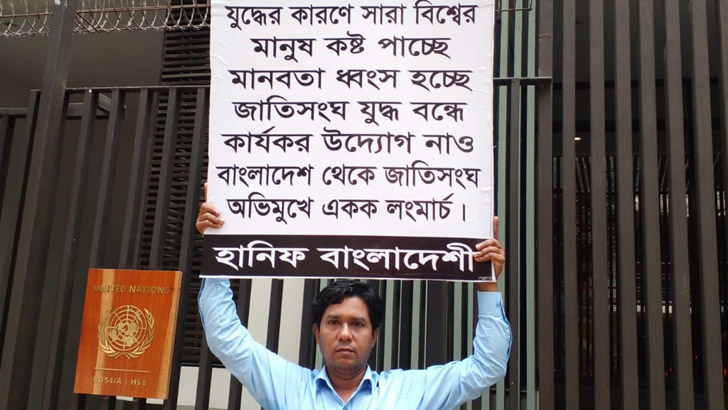 যুদ্ধের কারণে সারা বিশ্বের
মানুষ কষ্ট পাচ্ছে
মানবতা ধ্বংস হচ্ছে
জাতিসংঘ যুদ্ধ বন্ধে
কার্যকর উদ্যোগ নাও
বাংলাদেশ থেকে জাতিসংঘ
অভিমুখে একক লংমার্চ।
হানিফ বাংলাদেশী
UNITED NATIONS
54/A | HS 8